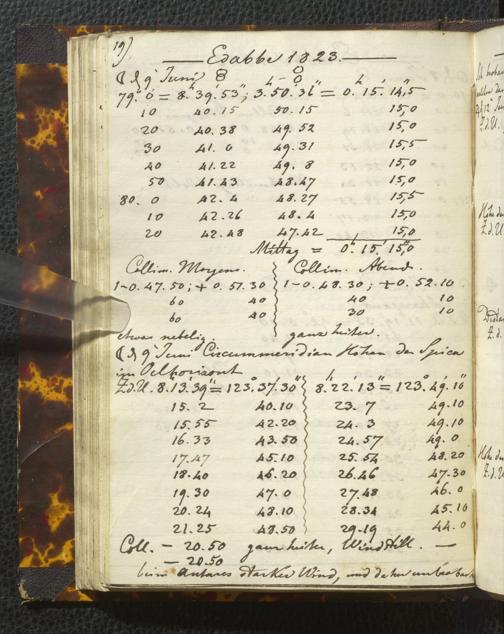 19)
Edabbe 1823.
d 9 Juni
79.° 0' = 8.h 39.' 53."; 3. 50. 36." = 0. 15. 14,5
10 40.15 50.15 15,0
20 40.38 49.52 15,0
30 41.0 49.31 15,5
40 41.22 49.8 15,0
50 41.43 48.47 15,0
80. 0 42.4 48.27 15,5
10 42.26 48.4 15,0
20 42.48 47.42 15,0
Mittag = 0.h 15.' 15,"0
Collim. Morgens. Collim. Abend.
1-0.47.50; + 0.57.30 1-0.48.30; + 0.52.10
60 40 40 10
60 40 30 10
etwas nebelig. ganz heiter.
d 9 Juni Circummeridian Höhen der Spica
im Oelhorizont
Z.d.U. 8.h 13.' 39" = 123.° 37.' 30" 8.h 22.' 13" = 123.° 49.' 10"
15. 2 40.10 23. 7 49.10
15.55 42.20 24. 3 49.10
16.33 43.50 24.57 49. 0
17.47 45.10 25.54 48.20
18.40 46.20 26.46 47.30
19.30 47.0 27.48 46.0
20.24 48.10 28.34 45.10
21.25 48.50 29.19 44.0
Coll. - 20.50 ganz heiter, Windstill. —
- 20.50
beim Antares starker Wind, und daher